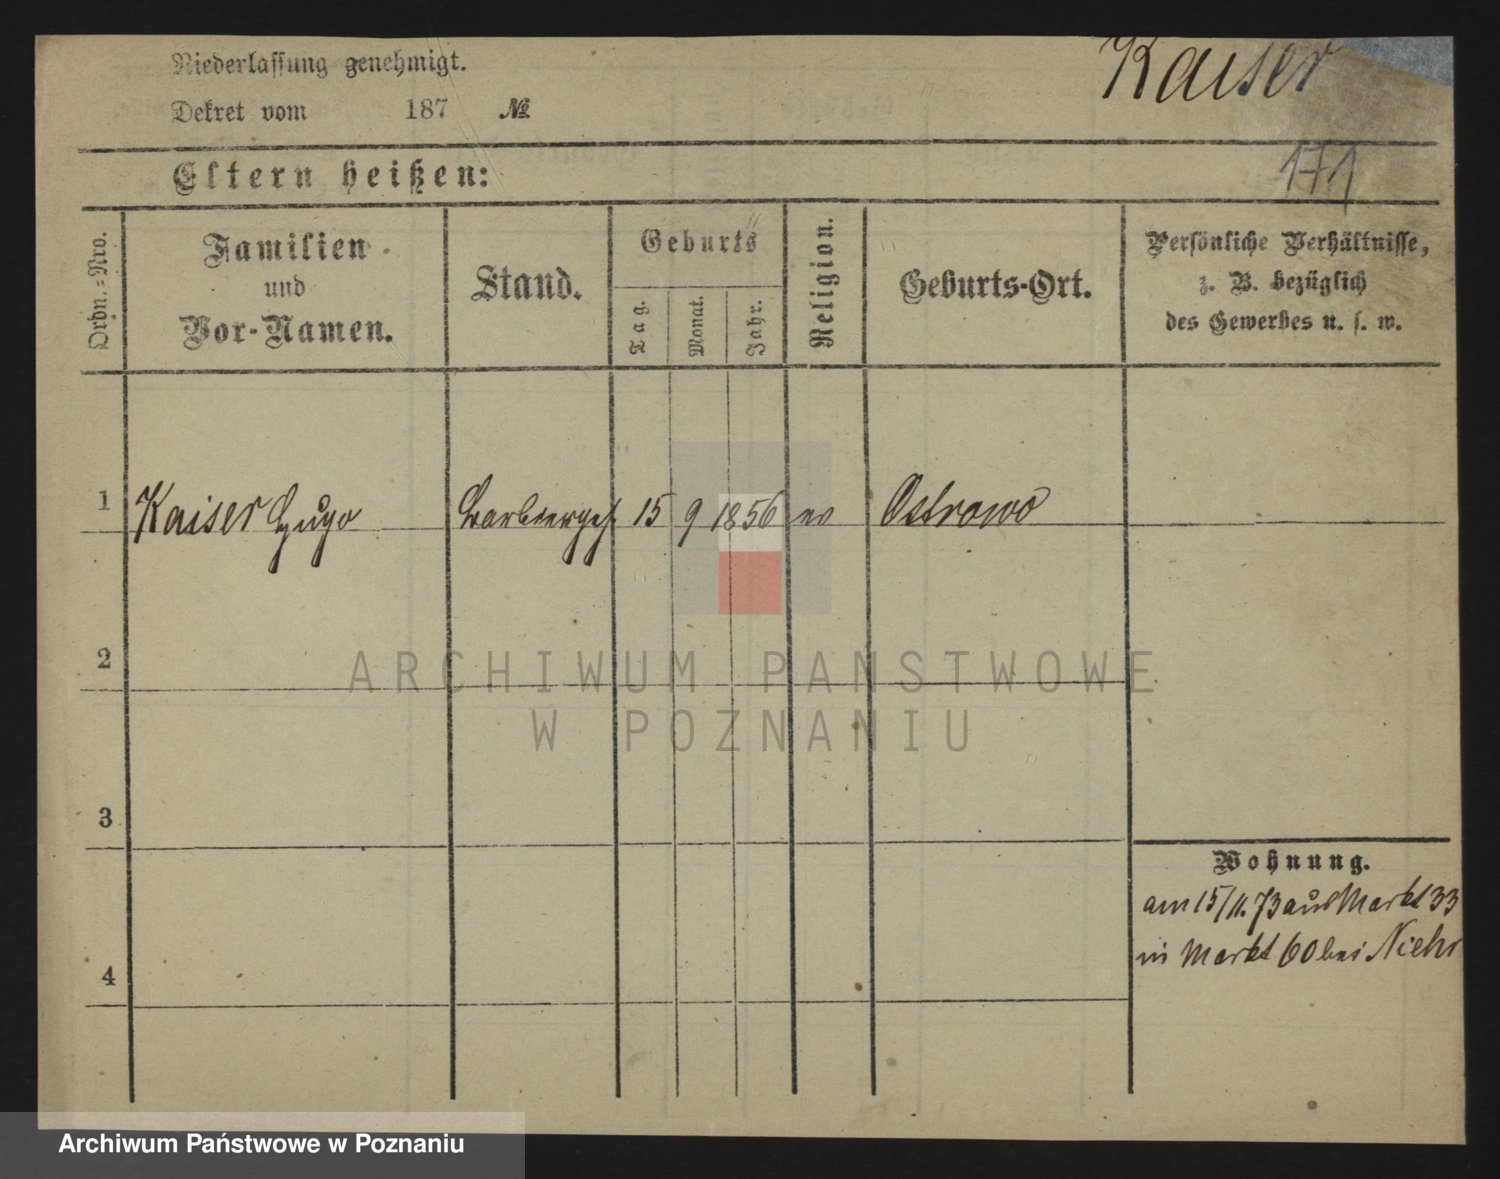 Niederlassung genehmigt.
Kaiser
Dekret vom 187 №
171
Eltern heißen:
Ordn.-Nro.
Familien-
und
Vor-Namen.
Stand.
Geburts
Tag.
Monat.
Jahr.
Religion.
Geburts-Ort.
Persönliche Verhältnisse,
z. B. bezüglich
des Gewerbes u. s. w.
1 Kaiser Hugo Barbierges. 15 9 1856 ev Ostrowo
2
ARCHIWUM PAŃSTWOWE
W POZNANIU
3
Wohnung.
am 15/11.73 aus Markt 33
in Markt 60 bei Niehr
4
Archiwum Państwowe w Poznaniu